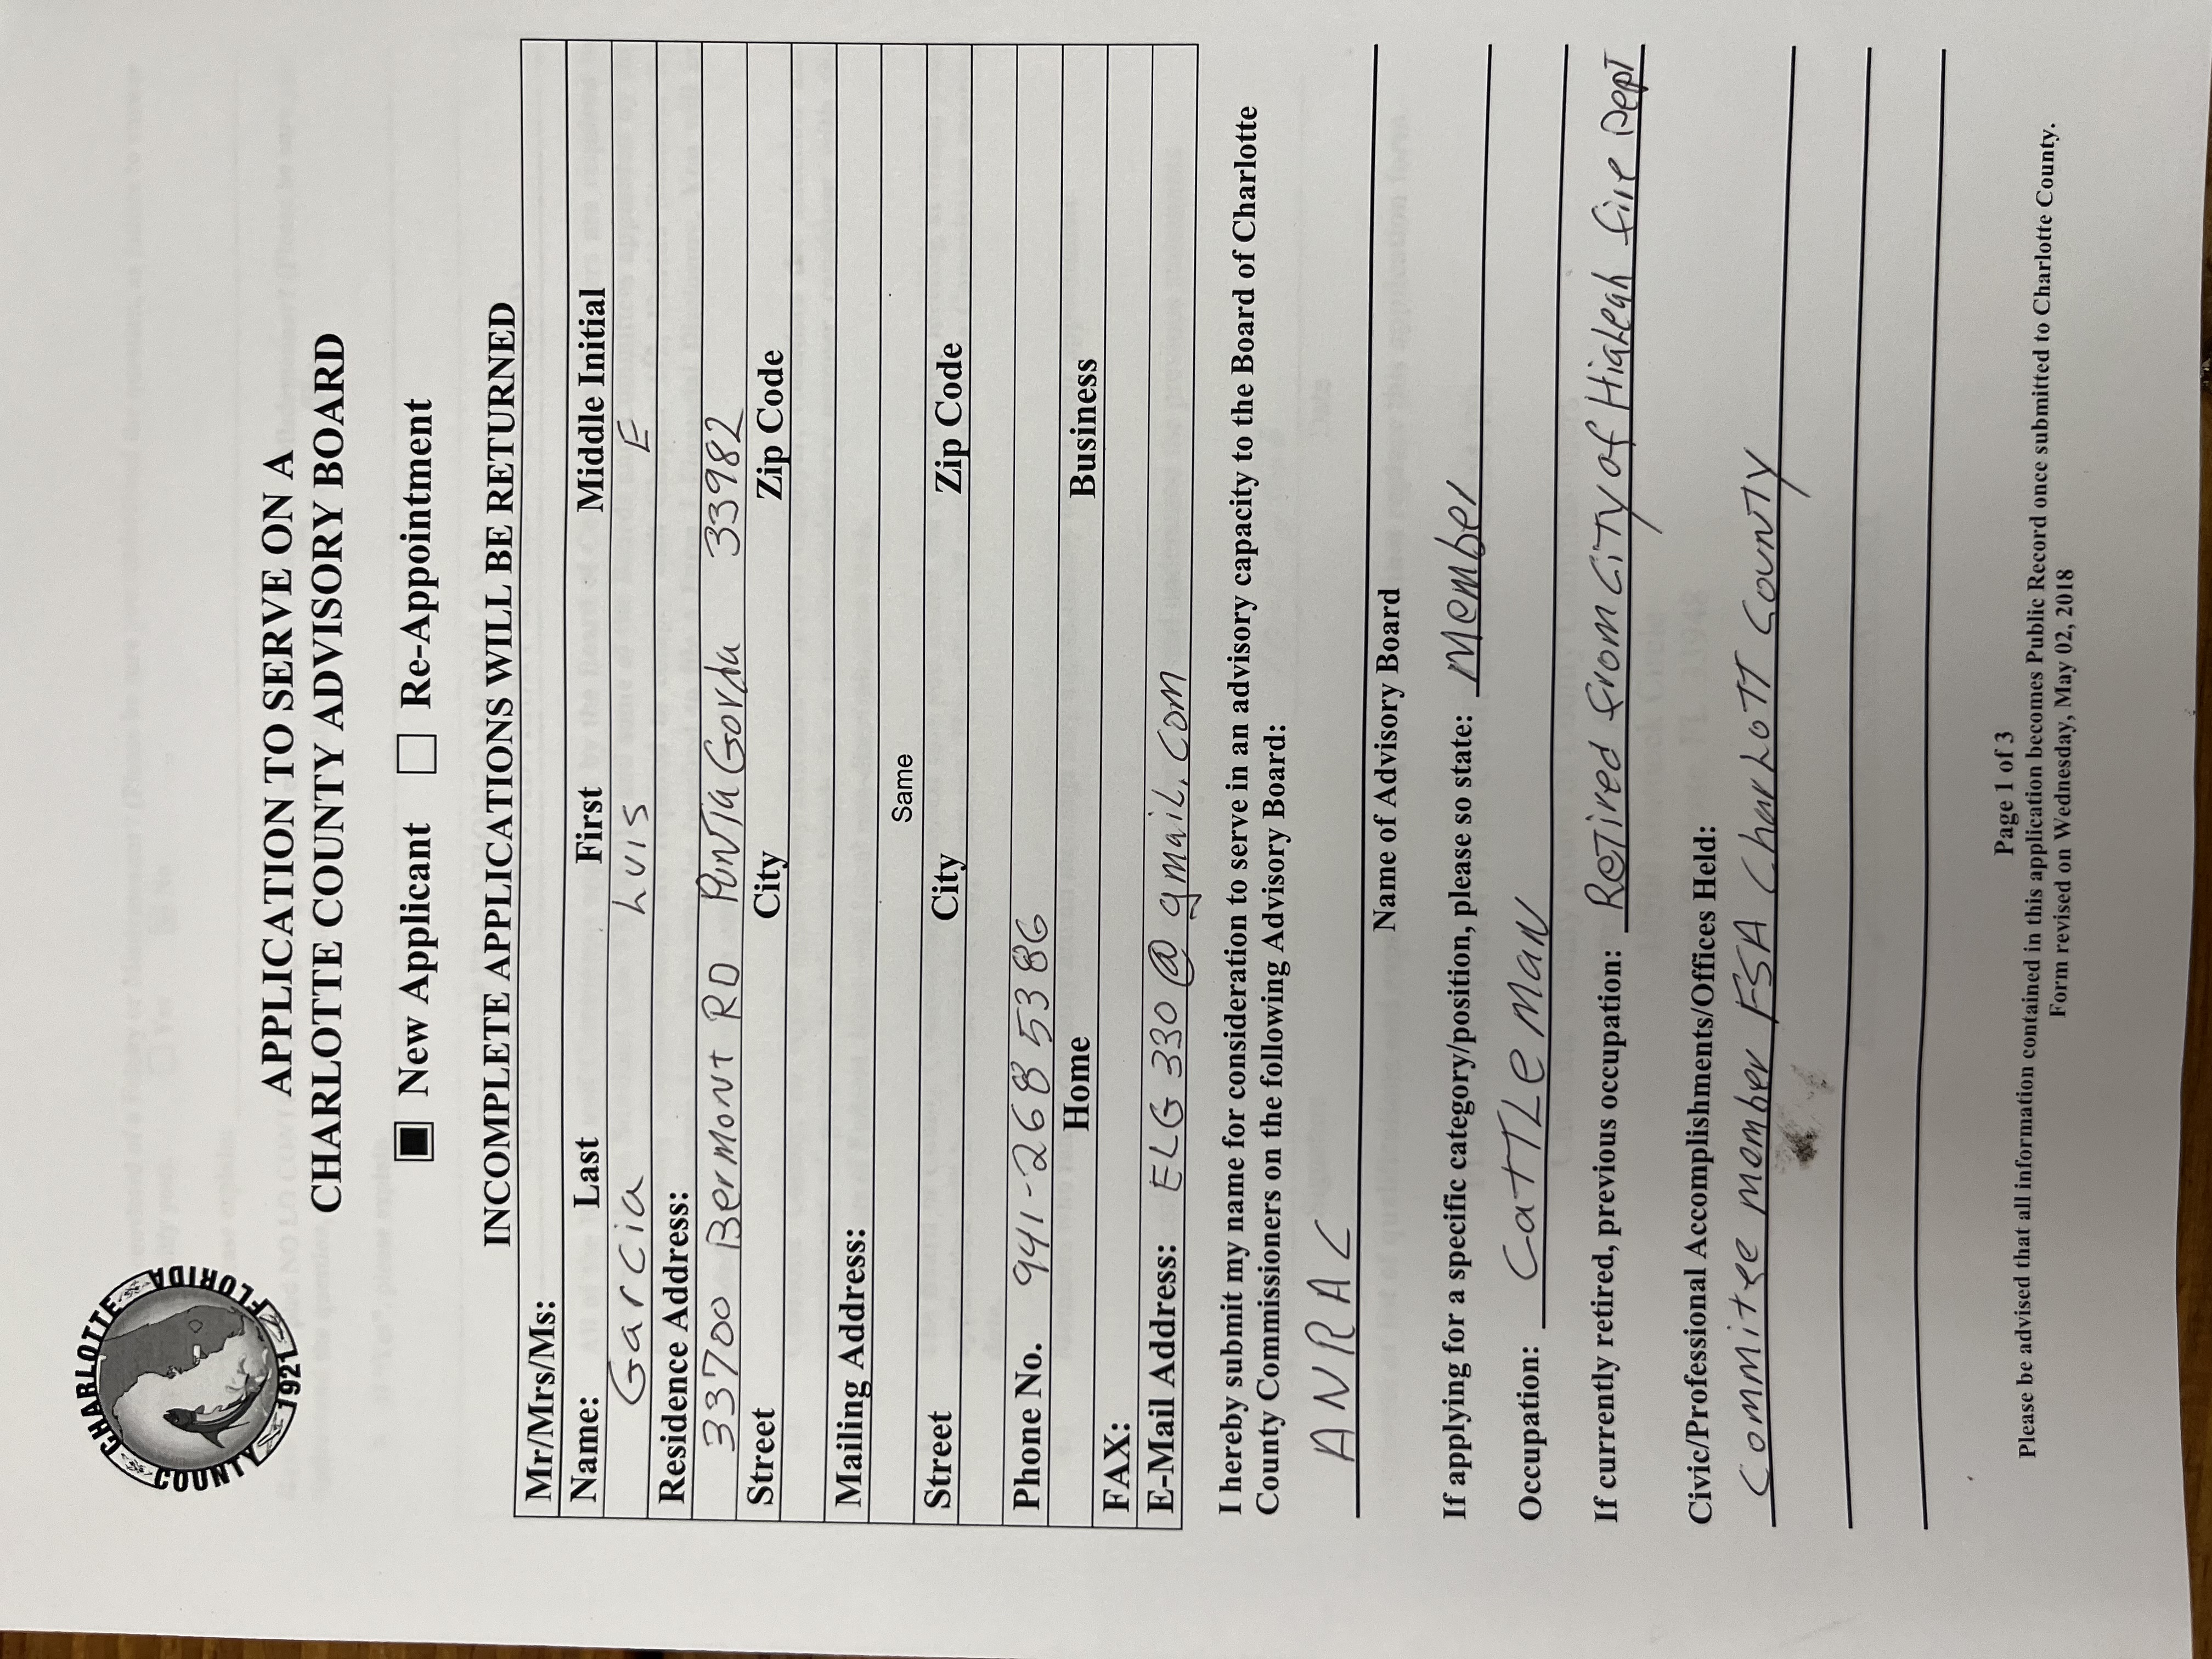 CHARLOTTE COUNTY FLORIDA 1921
APPLICATION TO SERVE ON A
CHARLOTTE COUNTY ADVISORY BOARD
New Applicant Re-Appointment
INCOMPLETE APPLICATIONS WILL BE RETURNED
Mr/Mrs/Ms:
Name: Last First Middle Initial
Garcia Luis E
Residence Address:
33700 Bermont RD Punta Gorda 33982
Street City Zip Code
Mailing Address:
Same
Street City Zip Code
Phone No. 941-268 5386
Home Business
FAX:
E-Mail Address: ELG330@gmail.com
I hereby submit my name for consideration to serve in an advisory capacity to the Board of Charlotte
County Commissioners on the following Advisory Board:
ANRAC
Name of Advisory Board
If applying for a specific category/position, please so state: Member
Occupation: CattLeman
If currently retired, previous occupation: Retired from City of Hialeah fire Dept
Civic/Professional Accomplishments/Offices Held:
Commitee member FSA CharLott County
Page 1 of 3
Please be advised that all information contained in this application becomes Public Record once submitted to Charlotte County.
Form revised on Wednesday, May 02, 2018